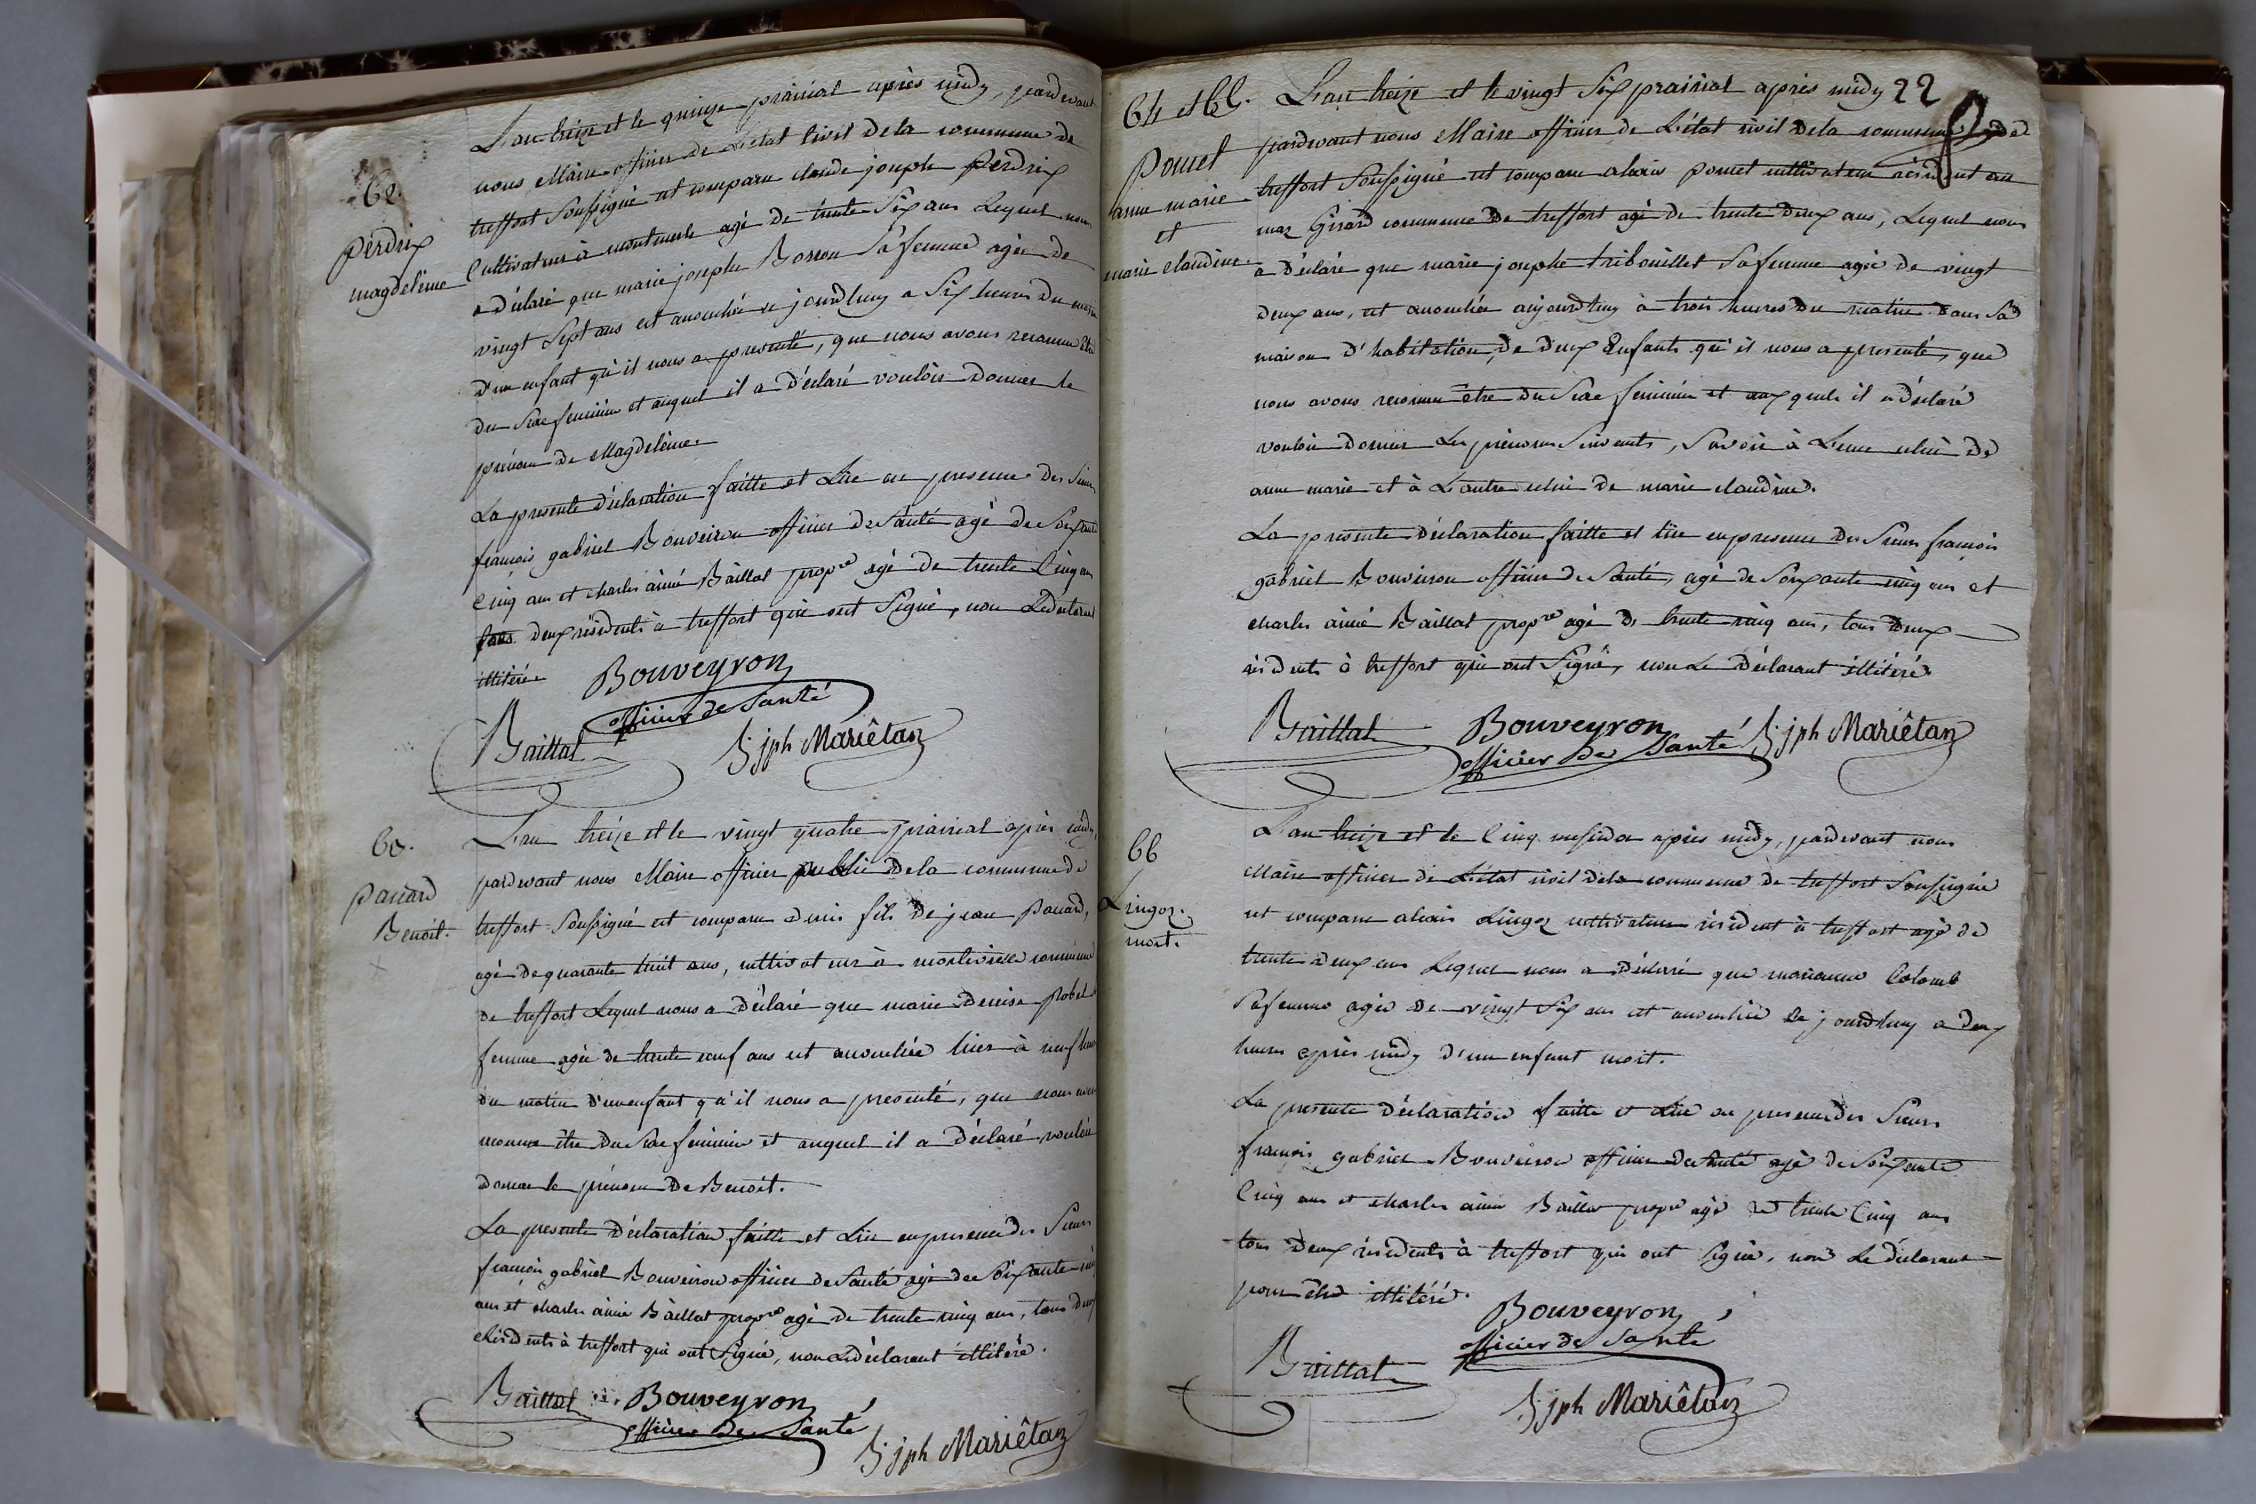 62.
perdrix
magdeleine
L'an treize et le quinze prairial après midy, pardevant
nous Maire officier de L'état Civil de la commune de
treffort Soussigné est comparu claude joseph perdrix
Cultivateur à agé de trente Six ans Lequel nous
a déclaré que marie josephe Sa femme agée de
vingt Sept ans est accouchée ce jourdhuy a Six heures du matin
d'un enfant qu'il nous a presenté, que nous avons reconnu être
du Sexe feminin et auquel il a déclaré vouloir Donner le
prénom de Magdeleine.
La presente déclaration faitte et Lue en presence des Sieurs
françois gabriel Bouveiron officier de Santé agé de Soixante
Cinq ans et charles aimé Baillat propre agé de trente Cinq ans
tous deux résidents à treffort qui ont Signé, non Le déclarant
illitéré
Bouveyron
officier de Santé
Baillat
jph Mariêtan
63.
panard
Benoit.
L'an treize et le vingt quatre prairial après midy,
pardevant nous Maire officier public de la commune de
treffort Soussigné est comparu denis fils de jean panard,
agé de quarante huit ans, cultivateur à commune
de treffort Lequel nous a déclaré que marie denise
femme agée de trente neuf ans est accouchée hier à neuf heures
du matin d'un enfant qu'il nous a presenté, que nous avons
reconnu être du Sexe feminin et auquel il a déclaré vouloir
donner le prénom de Benoit.
La presente déclaration faitte et Lue en presence des Sieurs
françois gabriel Bouveiron officier de Santé agé de Soixante cinq
ans et charles aimé Baillat propre agé de trente cinq ans, tous deux
résidents à treffort qui ont Signé, non Le déclarant illitéré.
Baillat Bouveyron
officier de Santé
jph Mariêtan
22
64 et 65.
poncet
anne marie
et
marie claudine
L'an treize et le vingt Six prairial après midy
pardevant nous Maire officier de L'état civil de la commune de
treffort Soussigné est comparu alexis poncet cultivateur résident au
maz Girard commune de treffort agé de trente deux ans, Lequel nous
a déclaré que marie josephe tribouillet Sa femme agée de vingt
deux ans, est accouchée aujourdhuy à trois heures du matin dans Sa
maison d'habitation, de deux Enfants qu'il nous a presenté, que
nous avons reconnu être du Sexe feminin et auxquels il a déclaré
vouloir donner Les prénoms Suivants, Savoir à L'une celui de
anne marie et à L'autre celui de marie claudine.
La presente déclaration faitte et lüe en presence des Sieurs françois
gabriel Bouveiron officier de Santé, agé de Soixante cinq ans et
charles aimé Baillat propre agé de trente cinq ans, tous deux
résidents à treffort qui ont Signé, non Le déclarant illitéré
Baillat Bouveyron
officier de Santé
jph Mariêtan
66
Lingoz.
mort.
L'an treize et le Cinq messidor après midy, pardevant nous
Maire officier de L'état civil de la commune de treffort Soussigné
est comparu alexis Lingoz cultivateur résident à treffort agé de
trente deux ans Lequel nous a déclaré que marianne Colomb
Sa femme agée de vingt Six ans est accouchée ce jourdhuy a deux
heures après midy d'un enfant mort.
La presente déclaration faitte et Lue en presence des Sieurs
françois gabriel Bouveiron officier de Santé agé de Soixante
Cinq ans et charles aimé Baillat propre agé de trente Cinq ans
tous deux résidents à treffort qui ont Signé, non Le déclarant
pour être illitéré.
Bouveyron
officier de Santé
Baillat
jph Mariêtan